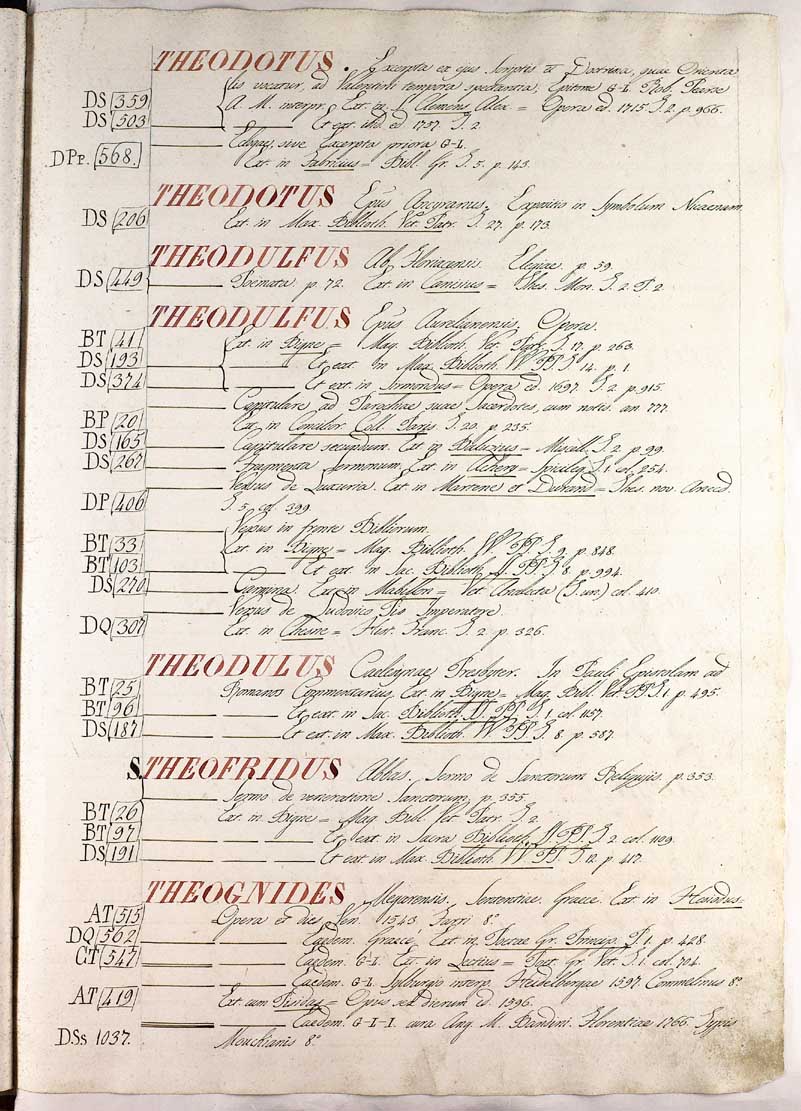 THEODOTUS. Excerpta ex ejus Scriptis et Doctrina, quae Orienta
lis vocatur, ad Valentini tempora spectantia, Epitome G-L. Rob. Pearse
DS 359 A. M. interpr. Ext. in S. Clemens Alex = Opera ed. 1715 T. 2. p. 966.
DS 503 Et ext. ibid. ed. 1757. T. 2
DPP. 568. Eclogae, sive Excerpta priora G-L.
Ext. in Fabricius = Bibl. Gr. T. 5. p. 143.
THEODOTUS Epus Ancyranus, Expositio in Symbolum Nicaenum.
DS 206 Ext. in Max. Biblioth. Vet. Patr. T. 27. p. 173.
THEODULFUS Ab. Floriacensis. Elegiae p. 59.
DS 449 Poemata p. 72. Ext. in Canisius = Thes. Mon. T. 2. P. 2.
THEODULFUS Epus Aurelianensis, Opera.
BT 41 Ext. in Bigne = Mag. Biblioth. Vet. Patr. T. 17. p. 263.
DS 193 Et ext. in Max. Biblioth. VV PP T. 14. p. 1.
DS 374 Et ext. in Sirmondus = Opera ed. 1697. T. 2. p. 915.
Capitulare ad Parochiae suae Sacerdotes, cum notis. an. 777.
BP 20 Ext. in Concilior. Coll. Paris. T. 20. p. 235.
DS 165 Capitulare secundum. Ext. in Baluzius = Miscell. T. 2. p. 99.
DS 267 Fragmenta Sermonum. Ext. in Achery = Spicileg. T. 1. col. 254.
Versus de Luxuria. Ext. in Martene et Durand = Thes. nov. Anecd.
DP 406 T. 5. col. 399.
Versus in fronte Bibliorum.
BT 33 Ext. in Bigne = Mag. Biblioth. VV. PP. T. 9. p. 848.
BT 103 Et ext. in Sac. Biblioth. SS PP T. 8. p. 994.
DS 270 Carmina. Ext. in Mabillon = Vet. Analecta (T. un.) col. 410.
Versus de Ludovico Pio Imperatore.
DQ 307 Ext. in Chesne = Hist. Franc. T. 2. p. 326.
THEODULUS Caelesyriae Presbyter. In Pauli Epistolam ad
BT 25 Romanos Commentarius, Ext. in Bigne = Mag. Bibl. Vet. PP T. 1. p. 495.
BT 96 Et ext. in Sac. Biblioth. SS. PP. T. 1. col. 1157.
DS 187 Et ext. in Max. Biblioth. VV PP T. 8. p. 587.
S. THEOFRIDUS Abbas, Sermo de Sanctorum Reliquiis. p. 353.
Sermo de veneratione Sanctorum p. 355.
BT 26 Ext. in Bigne = Mag. Bibl. Vet. Patr. T. 2.
BT 97 Et ext. in Sacra Biblioth. SS PP T. 2. col. 1109.
DS 191 Et ext in Max. Biblioth. VV PP. T. 12. p. 417.
THEOGNIDES Megarensis. Sententiae. Graece. Ext. in Hesiodus
AT 515 Opera et dies Ven. 1543. Farri 8º
DQ 562 Eaedem. Graece. Ext. in Poetae Gr. Princip. P. 1. p. 428.
CT 547 Eaedem. G-L. Ext. in Lectius = Poet. Gr. Vet. T. 1. col. 704.
Eaedem. G-L. Sylburgio interp. Heidelbergae 1597. Commelinus 8º
AT 419 Ext. cum Hesiodus = Opus sed dierum ed. 1596.
Eaedem. G-L-I. cura Ang. M. Bandini. Florentiae 1766. Typis
DSs 1037. Mouckianis 8º